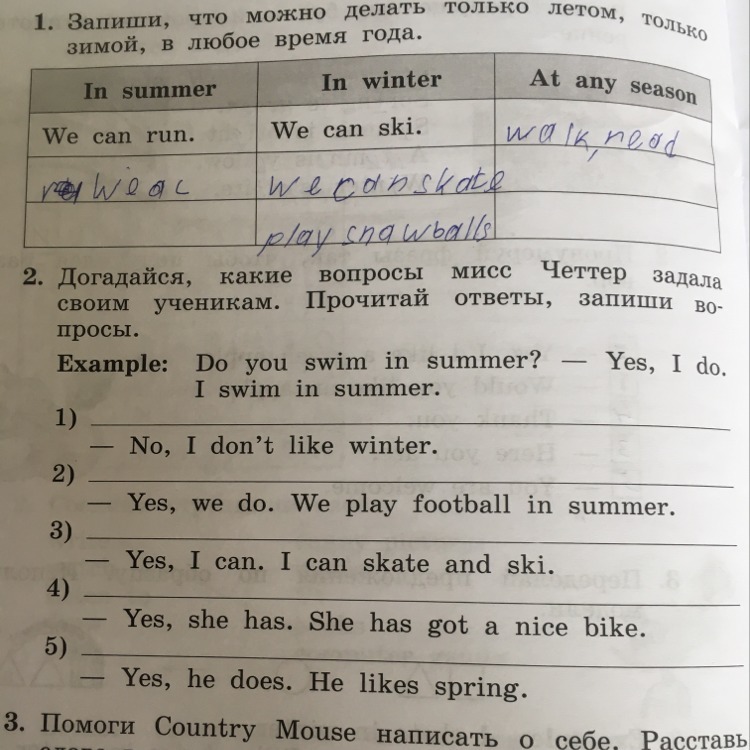 1. Запиши, что можно делать только летом, только
зимой, в любое время года.
In summer In winter At any season
We can run. We can ski. walk, read
we can skate
play snowballs
2. Догадайся, какие вопросы мисс Четтер задала
своим ученикам. Прочитай ответы, запиши во-
просы.
Example: Do you swim in summer? — Yes, I do.
I swim in summer.
1)
— No, I don't like winter.
2)
— Yes, we do. We play football in summer.
3)
— Yes, I can. I can skate and ski.
4)
— Yes, she has. She has got a nice bike.
5)
— Yes, he does. He likes spring.
3. Помоги Country Mouse написать о себе. Расставь